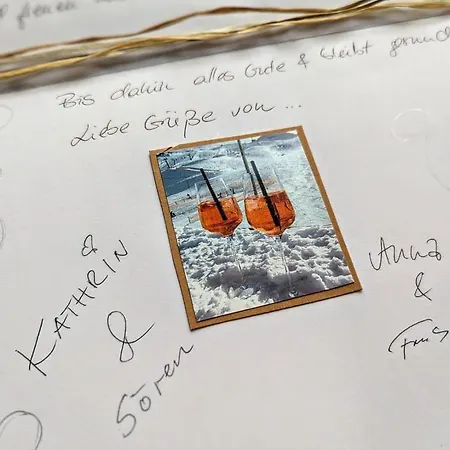 freuen
Bis dahin alles Gute & bleibt gesund
Liebe Grüße von ...
KATHRIN
&
Sören
Anna
&